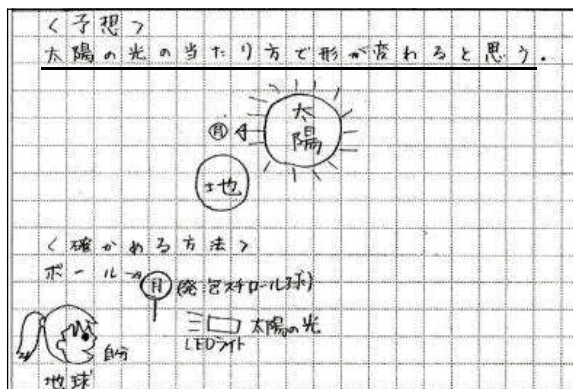 〈予想〉
太陽の光の当たり方で形が変わると思う.
太陽
月
地
〈確かめる方法〉
ボール→月(発泡スチロール球)
太陽の光
LEDライト
自分
地球